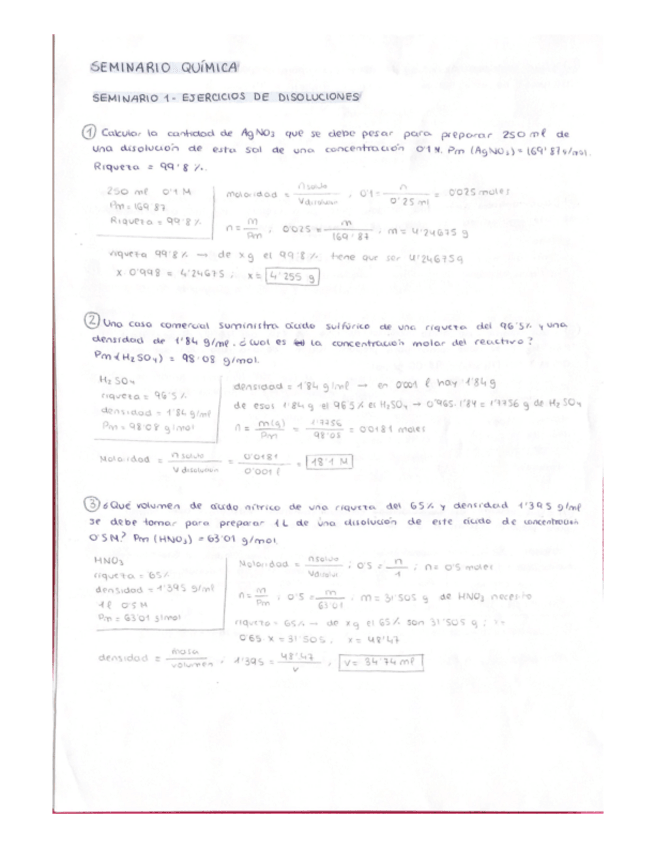 SEMINARIO QUÍMICA
SEMINARIO 1- EJERCICIOS DE DISOLUCIONES
① Calcular la cantidad de AgNO₃ que se debe pesar para preparar 250 ml de
una disolución de esta sal de una concentración 0'1 M. Pm (AgNO₃) = 169'87 g/mol.
Riqueza = 99'8 %.
250 ml 0'1 M
Pm = 169'87
Riqueza = 99'8 %
molaridad = n soluto / V disolución ; 0'1 = n / 0'25 ml = 0'025 moles
n = m / Pm ; 0'025 = m / 169'87 ; m = 4'24675 g
riqueza 99'8 % → de x g el 99'8 % tiene que ser 4'24675 g
x · 0'998 = 4'24675 ; x = 4'255 g
② Una casa comercial suministra ácido sulfúrico de una riqueza del 96'5 % y una
densidad de 1'84 g/ml. ¿Cuál es la concentración molar del reactivo?
Pm (H₂SO₄) = 98'08 g/mol.
H₂SO₄
riqueza = 96'5 %
densidad = 1'84 g/ml
Pm = 98'08 g/mol
densidad = 1'84 g/ml → en 0'001 l hay 1'84 g
de esos 1'84 g el 96'5 % el H₂SO₄ → 0'965 · 1'84 = 1'7756 g de H₂SO₄
n = m(g) / Pm = 1'7756 / 98'08 = 0'0181 moles
Molaridad = n soluto / V disolución = 0'0181 / 0'001 l = 18'1 M
③ ¿Qué volumen de ácido nítrico de una riqueza del 65 % y densidad 1'395 g/ml
se debe tomar para preparar 1 L de una disolución de este ácido de concentración
0'5 M? Pm (HNO₃) = 63'01 g/mol.
HNO₃
riqueza = 65 %
densidad = 1'395 g/ml
1 l 0'5 M
Pm = 63'01 g/mol
Molaridad = n soluto / V disol ; 0'5 = n / 1 ; n = 0'5 moles
n = m / Pm ; 0'5 = m / 63'01 ; m = 31'505 g de HNO₃ necesito
riqueza = 65 % → de x g el 65 % son 31'505 g ;
0'65 · x = 31'505 ; x = 48'47
densidad = masa / volumen ; 1'395 = 48'47 / v ; V = 34'74 ml